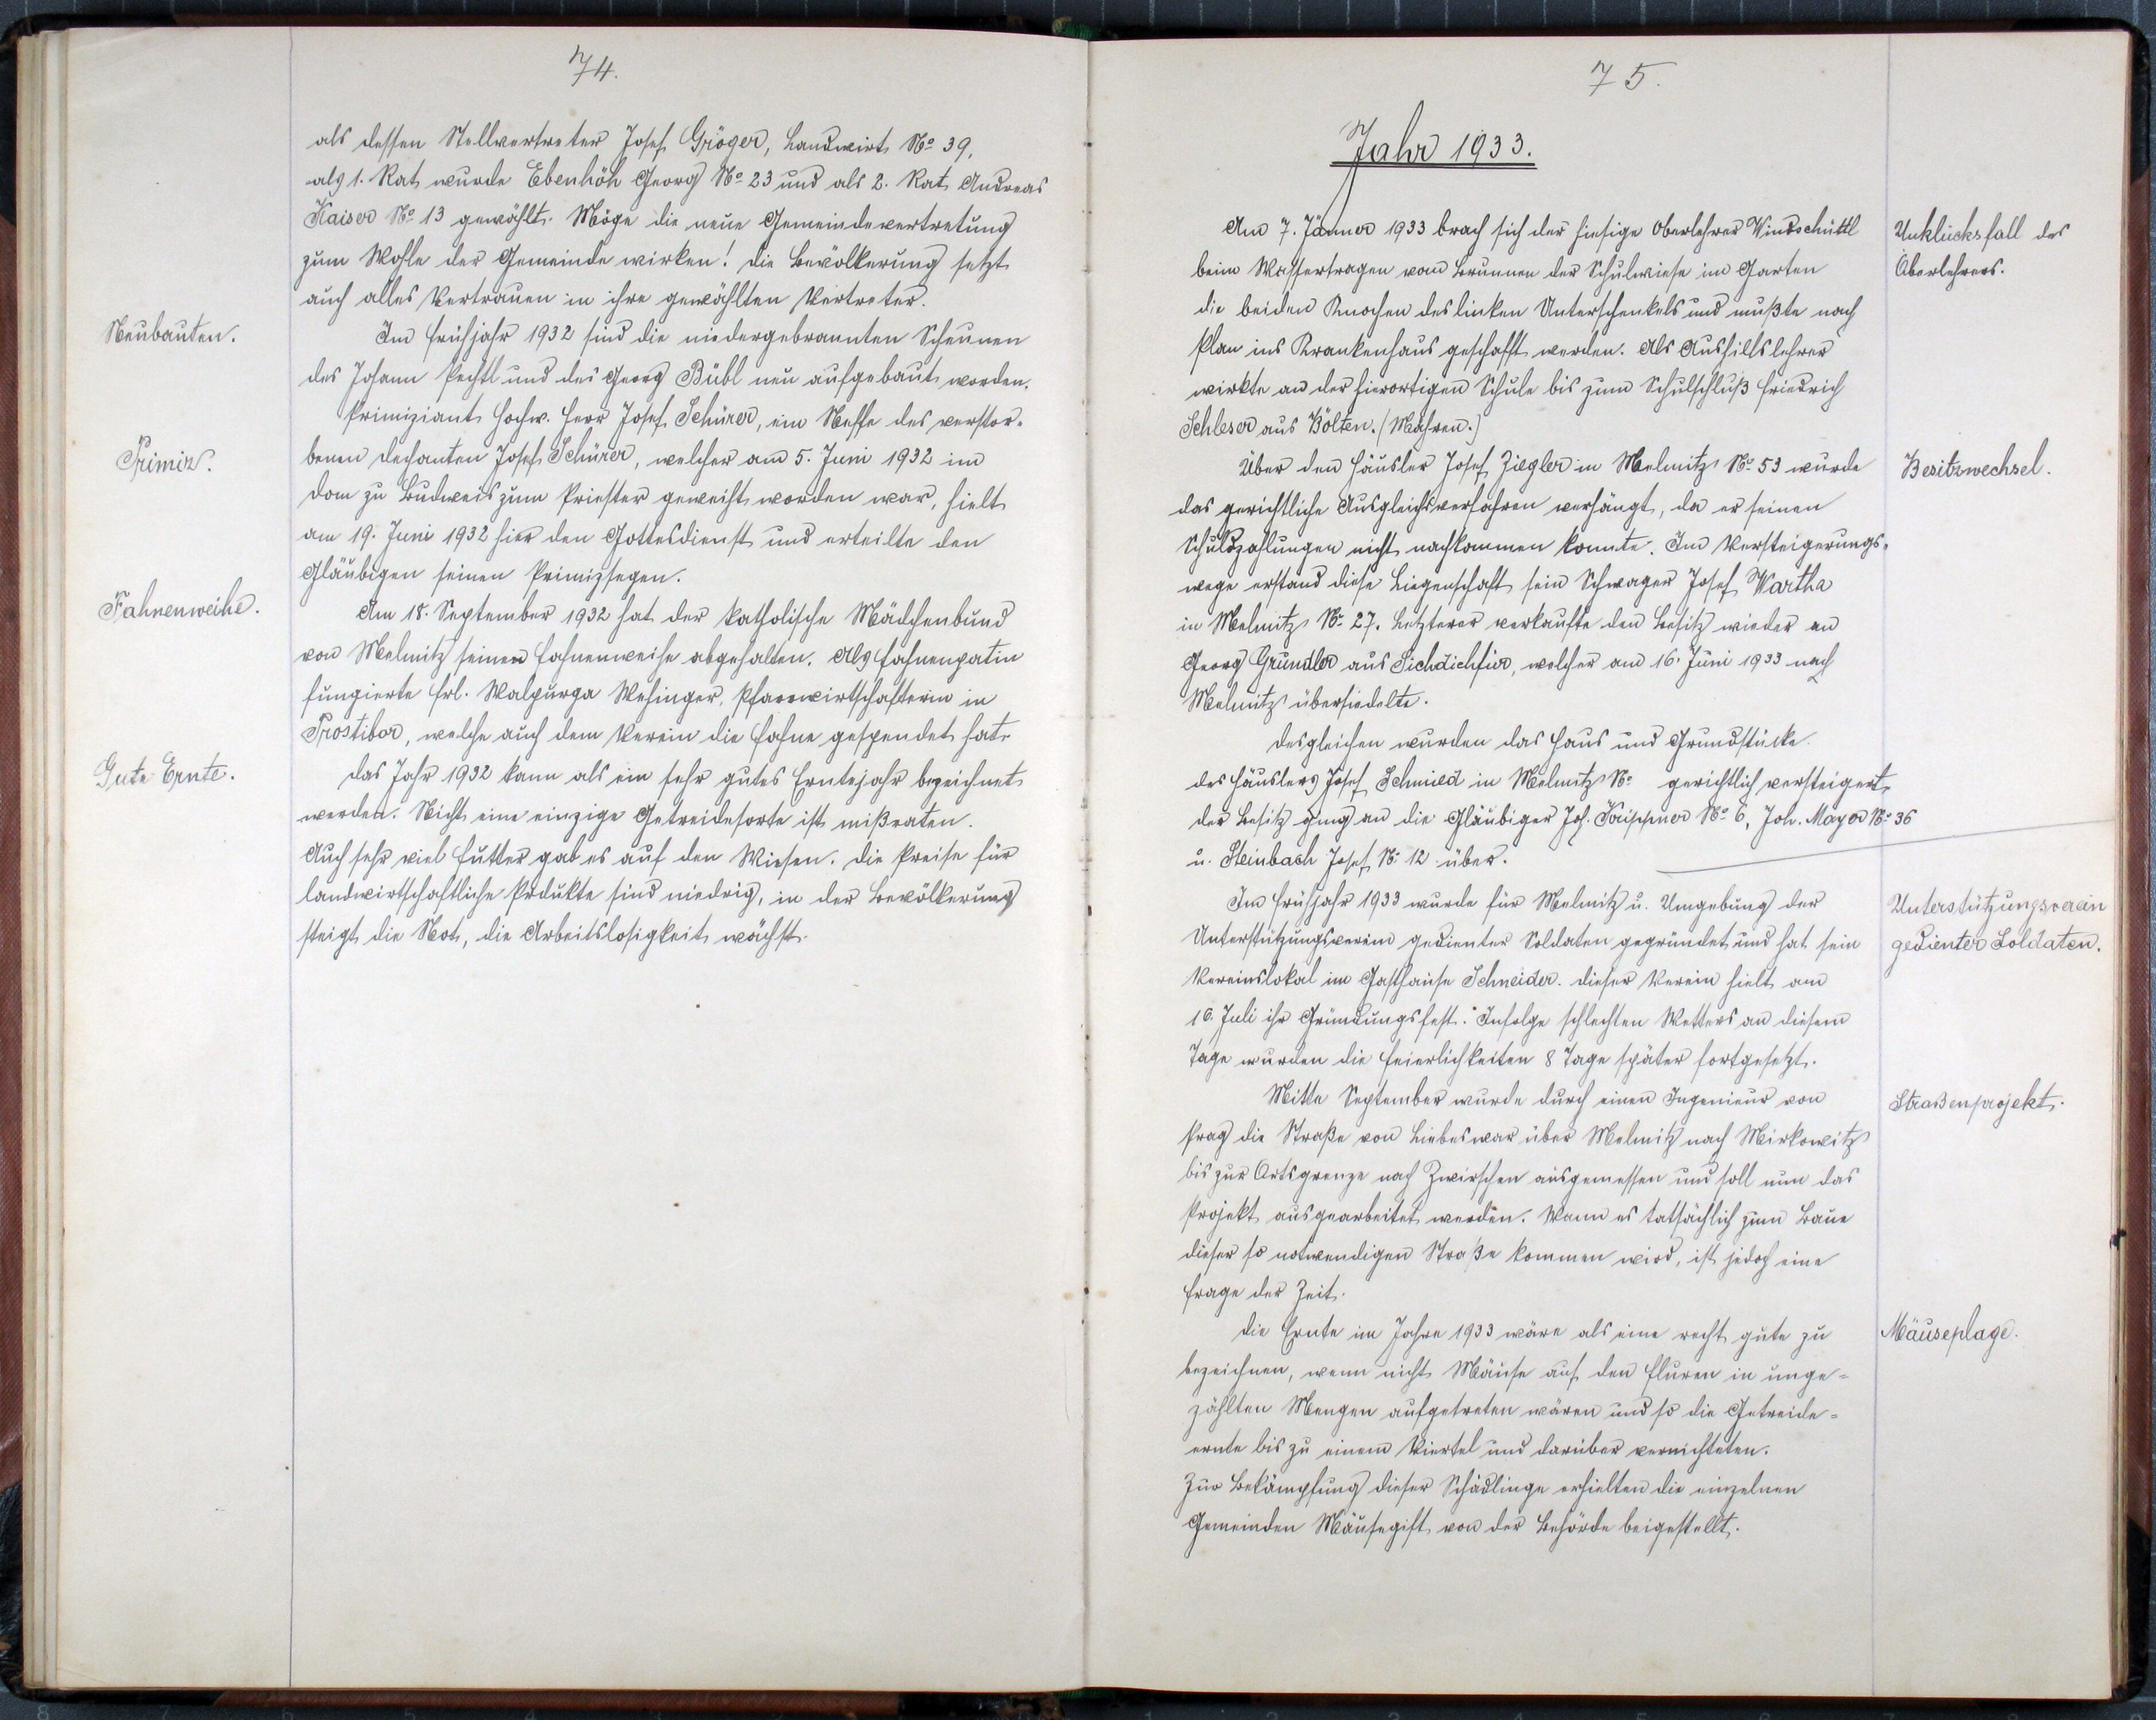 74.
als dessen Stellvertreter Josef Gröger, Landwirt No 39,
als 1. Rat wurde Ebenhöh Georg No 23 und als 2. Rat Andreas
Kaiser No 13 gewählt. Möge die neue Gemeindevertretung
zum Wohle der Gemeinde wirken! Die Bevölkerung setzt
auch alles Vertrauen in ihre gewählten Vertreter.
Neubauten.
Im Frühjahr 1932 sind die niedergebrannten Scheunen
des Johann Pechtl und des Georg Bübl neu aufgebaut worden.
Primiziant Hochw. Herr Josef Schürer, ein Neffe des verstor-
Primiz.
benen Dechanten Josef Schürer, welcher am 5. Juni 1932 im
Dom zu Budweis zum Priester geweiht worden war, hielt
am 19. Juni 1932 hier den Gottesdienst und erteilte den
Gläubigen seinen Primizsegen.
Fahnenweihe.
Am 18. September 1932 hat der katholische Mädchenbund
von Melmitz seinen Fahnenweihe abgehalten. Als Fahnenpatin
fungierte Frl. Walpurga Wesinger, Pfarrwirtschafterin in
Prostibor, welche auch dem Verein die Fahne gespendet hat.
Gute Ernte.
Das Jahr 1932 kann als ein sehr gutes Erntejahr bezeichnet
werden. Nicht eine einzige Getreidesorte ist mißraten.
Auch sehr viel Futter gab es auf den Wiesen. Die Preise für
landwirtschaftliche Prdukte sind niedrig, in der Bevölkerung
steigt die Not, die Arbeitslosigkeit wächst.
75.
Jahr 1933.
Am 7. Jänner 1933 brach sich der hiesige Oberlehrer Windschüttl
Unklücksfall des
beim Wassertragen vom Brunnen der Schulwiese im Garten
Oberlehrers.
die beiden Knochen des linken Unterschenkels und mußte nach
Plan ins Krankenhaus geschafft werden. Als Aushilfslehrer
wirkte an der hierortigen Schule bis zum Schulschluß Friedrich
Schleser aus Bölten. (Mähren.)
Über den Häusler Josef Ziegler in Melmitz No 53 wurde
Besitzwechsel.
das gerichtliche Ausgleichsverfahren verhängt, da er seinen
Schuldzahlungen nicht nachkommen konnte. Im Versteigerungs-
wege erstand diese Liegenschaft sein Schwager Josef Wartha
in Melmitz No 27. Letzterer verkaufte den Besitz wieder an
Georg Gründler aus Sichdichfür, welcher am 16. Juni 1933 nach
Melmitz übersiedelte.
Desgleichen wurden das Haus und Grundstücke
des Häuslers Josef Schmied in Melmitz No gerichtlich versteigert,
der Besitz ging an die Gläubiger Jos. Krippner No 6, Joh. Mayer No 36
u. Steinbach Josef No 12 über.
Im Frühjahr 1933 wurde für Melmitz u. Umgebung der
Unterstützungsverein
Unterstützungsverein gedienter Soldaten gegründet und hat sein
gedienter Soldaten.
Vereinslokal im Gasthause Schneider. Dieser Verein hielt am
16. Juli ihr Gründungsfest. Infolge schlechten Wetters an diesem
Tage wurden die Feierlichkeiten 8 Tage später fortgesetzt.
Mitte September wurde durch einen Ingenieur von
Straßenprojekt.
Prag die Straße von Liebeswar über Melmitz nach Mirkowitz
bis zur Ortsgrenze nach Zwirschen ausgemessen und soll nun das
Projekt ausgearbeitet werden. Wann es tatsächlich zum Baue
dieser so notwendigen Straße kommen wird, ist jedoch eine
Frage der Zeit.
Die Ernte im Jahre 1933 wäre als eine recht gute zu
Mäuseplage.
bezeichnen, wenn nicht Mäuse auf den Fluren in unge-
zählten Mengen aufgetreten wären und so die Getreide-
ernte bis zu einem Viertel und darüber vernichteten.
Zur Bekämpfung dieser Schädlinge erhielten die einzelnen
Gemeinden Mäusegift von der Behörde beigestellt.